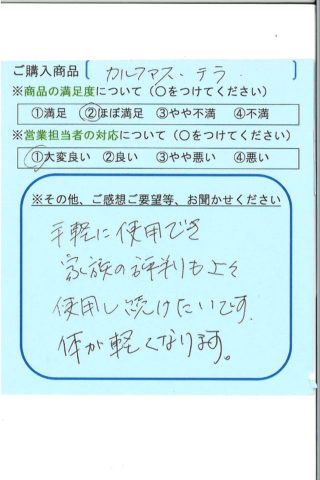 ご購入商品 〔 カルファス・テラ
※商品の満足度について（○をつけてください）
①満足 ②ほぼ満足 ③やや不満 ④不満
※営業担当者の対応について（○をつけてください）
①大変良い ②良い ③やや悪い ④悪い
※その他、ご感想ご要望等、お聞かせください
手軽に使用でき
家族の評判も上々
使用し続けたいです.
体が軽くなります。